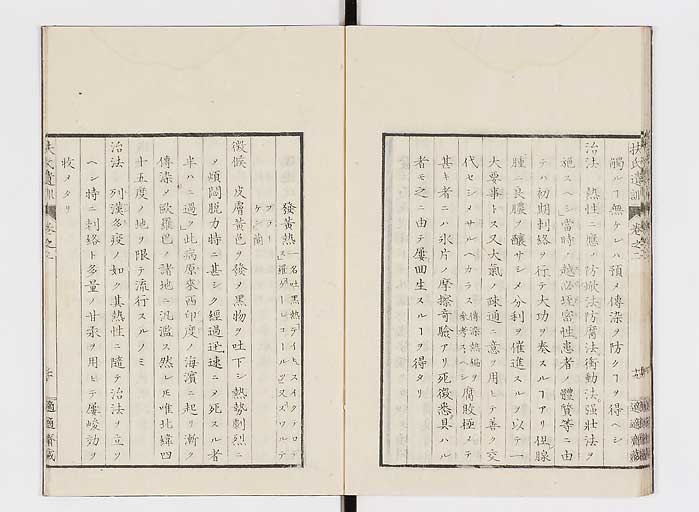 觸ルヿ無ケレハ預メ傳染ヲ防クヿヲ得ヘシ
治法 熱性ニ應ノ防焮法防腐法衝動法强壯法ヲ
施スヘシ當時ノ患者ノ體質等ニ由
テハ初期刺絡ヲ行テ大功ヲ奏スルヿアリ但腺
腫ニ良膿ヲ釀サシメ分利ヲ催進スルヲ以テ一
大要事トス又大氣ノ疎通ニ意ヲ用ヒテ善ク交
代セシメサルヘカラス傳染熱編ヲ參考スヘシ腐敗極メテ
甚キ者ニハ氷片ノ摩擦奇驗アリ死徵悉具ハル
者モ之ニ由テ屢囬生スルヿヲ得タリ
發黃熱一名吐黑熱
徵候 皮膚黃色ヲ發メ黑物ヲ吐下シ熱勢劇烈ニ
メ煩悶脫力特ニ甚シク經過迅速ニメ死スル者
半ハニ過ク此病原來西印度ノ海濱ニ起リ漸ク
傳染メ歐羅巴ノ諸地ニ汎濫ス然レ𪜈唯北緯四
十五度ノ地ヲ限テ流行スルノミ
治法 列漢多疫ノ如ク其熱性ニ隨テ治法ヲ立ツ
ヘシ特ニ刺絡ト多量ノ甘汞ヲ用ヒテ屢峻効ヲ
收メタリ
扶氏遺訓 卷之二
適適齋藏